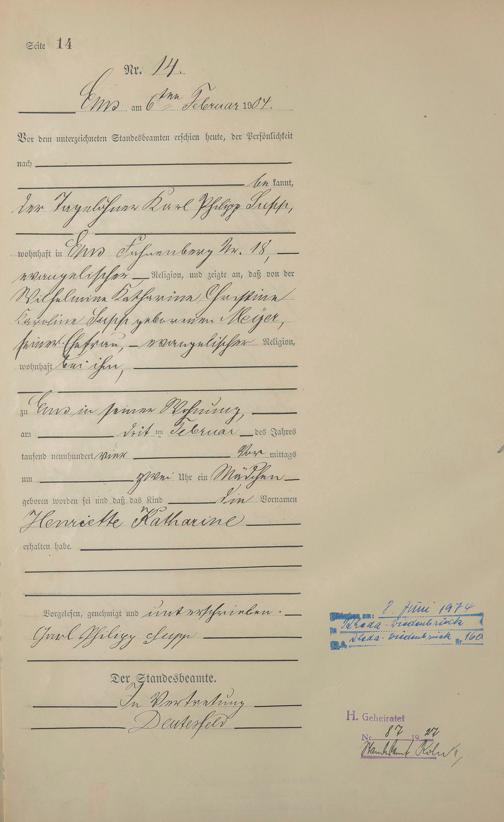 Seite 14
Nr. 14.
Ems am 6ten Februar 1904.
Vor dem unterzeichneten Standesbeamten erschien heute, der Persönlichkeit
nach
bekannt,
der Tagelöhner Karl Philipp
wohnhaft in Ems Nr. 18,
evangelischer Religion, und zeigte an, daß von der
Wilhelmine Katharine Christine
Caroline geborenen Meyer,
seiner Ehefrau, evangelischer Religion,
wohnhaft bei ihm,
zu Ems in seiner Wohnung,
am dritten Februar des Jahres
tausend neunhundert vier Vor mittags
um zwei Uhr ein Mädchen
geboren worden sei und daß das Kind die Vornamen
Henriette Katharine
erhalten habe.
Vorgelesen, genehmigt und unterschrieben.
Carl Philipp
Der Standesbeamte.
In Vertretung
am: 8. Juni 1974
Wiedenbrück
Wiedenbrück Nr. 160
H. Geheiratet
Nr. 87 1927
Standesamt Köln